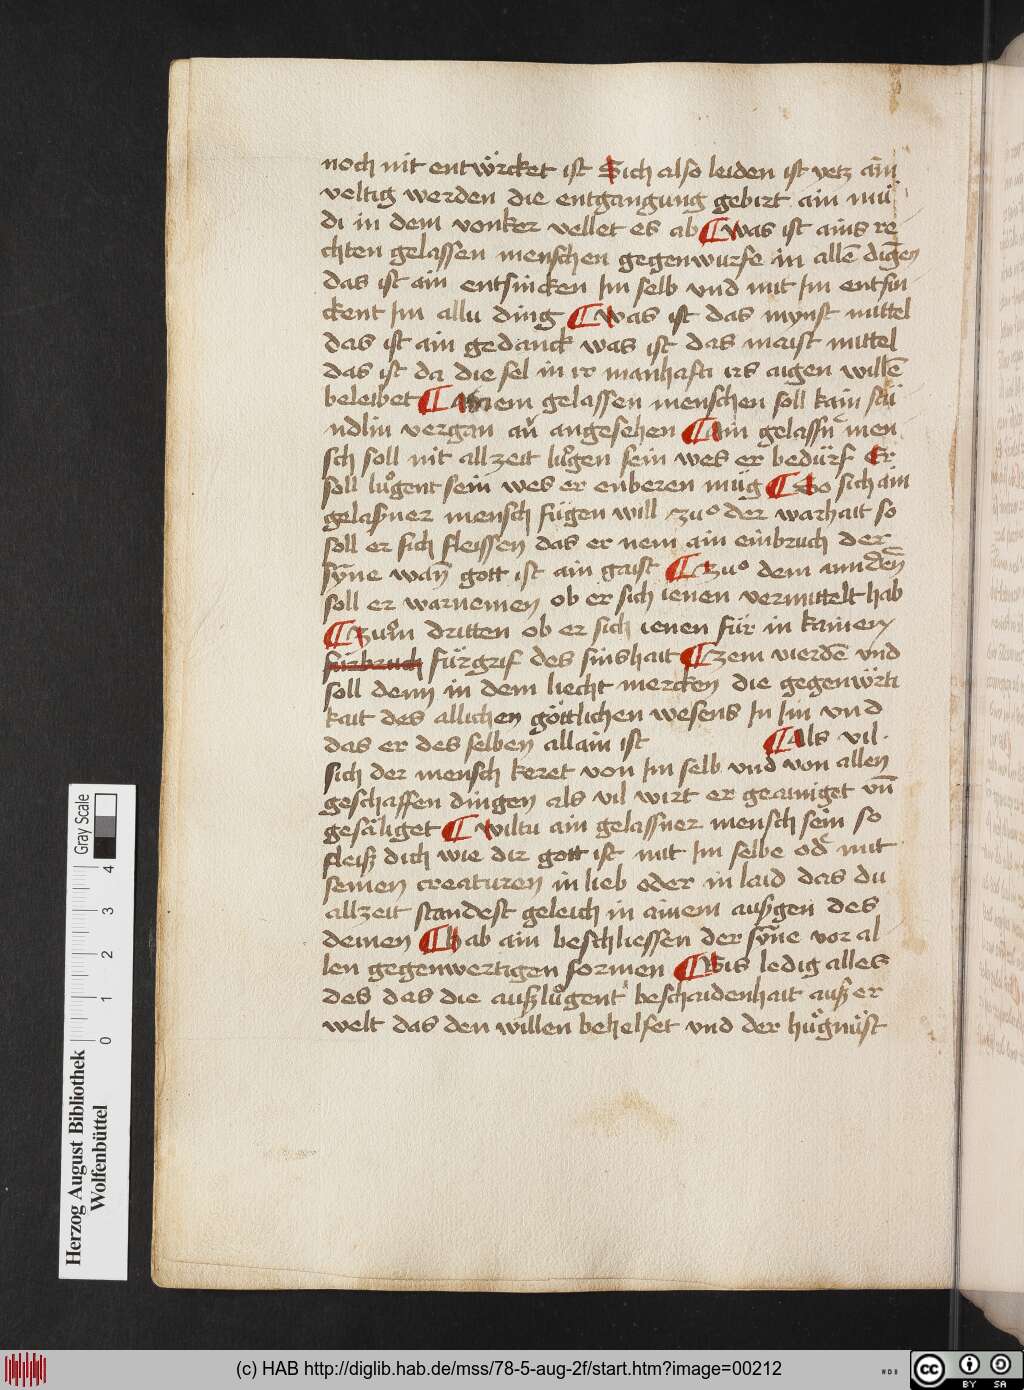 noch nit entwörcket ist Sich also leiden ist yetz ain
veltig werden die entgangung gebirt ain mu
di in dem vonker vellet es ab ¶ was ist ains re
chten gelassen menschen gegenwurfe in allē dīgen
das ist ain entsincken Im selb vnd mit Im entsin
ckent Im allu ding ¶ was ist das mynst mittel
das ist ain gedanck was ist das maist mittel
das ist da die sel in ir manhafti irs aigen willē
beleibet ¶ Ainem gelassen menschen soll kain stü
ndlin vergan an angesehen ¶ Ain gelassn men
sch soll nit allzeit luͦgen sein wes er bedürf Er
soll luͦgent sein wes er enberen müg ¶ So sich ain
gelaßner mensch fügen will zuͦ der warhait so
soll er sich fleissen das er nem ain einbruch der
syne wan gott ist ain gaist ¶ zuͦ dem anndern
soll er warnemen ob er sich ienen vermittelt hab
¶ zuͦm dritten ob er sich ienen für in kainen
fürbruch fürgrif des sinshait ¶ zem vierdē vnd
soll denn in dem liecht mercken die gegenwörti
kait des allichen göttlichen wesens In Im vnd
das er des selben allain ist ¶ Als vil
sich der mensch keret von Im selb vnd von allen
geschaffen dingen als vil wirt er geainiget vn̄
gesäliget ¶ wiltu ain gelassner mensch sein so
fleiß dich wie dir gott ist mit Im selbe od mit
seinen creaturen in lieb oder in laid das du
allzeit standest geleich in ainem außgen des
deinen ¶ Hab ain beschliessen der syne vor al
len gegenwertigen formen ¶ Bis ledig alles
des das die außluͦgent beschaidenhait auß er
welt das den willen behelfet vnd der hügnüst
Herzog August Bibliothek
Wolfenbüttel
Gray Scale
0 1 2 3 4
(c) HAB http://diglib.hab.de/mss/78-5-aug-2f/start.htm?image=00212
WDB
cc BY SA